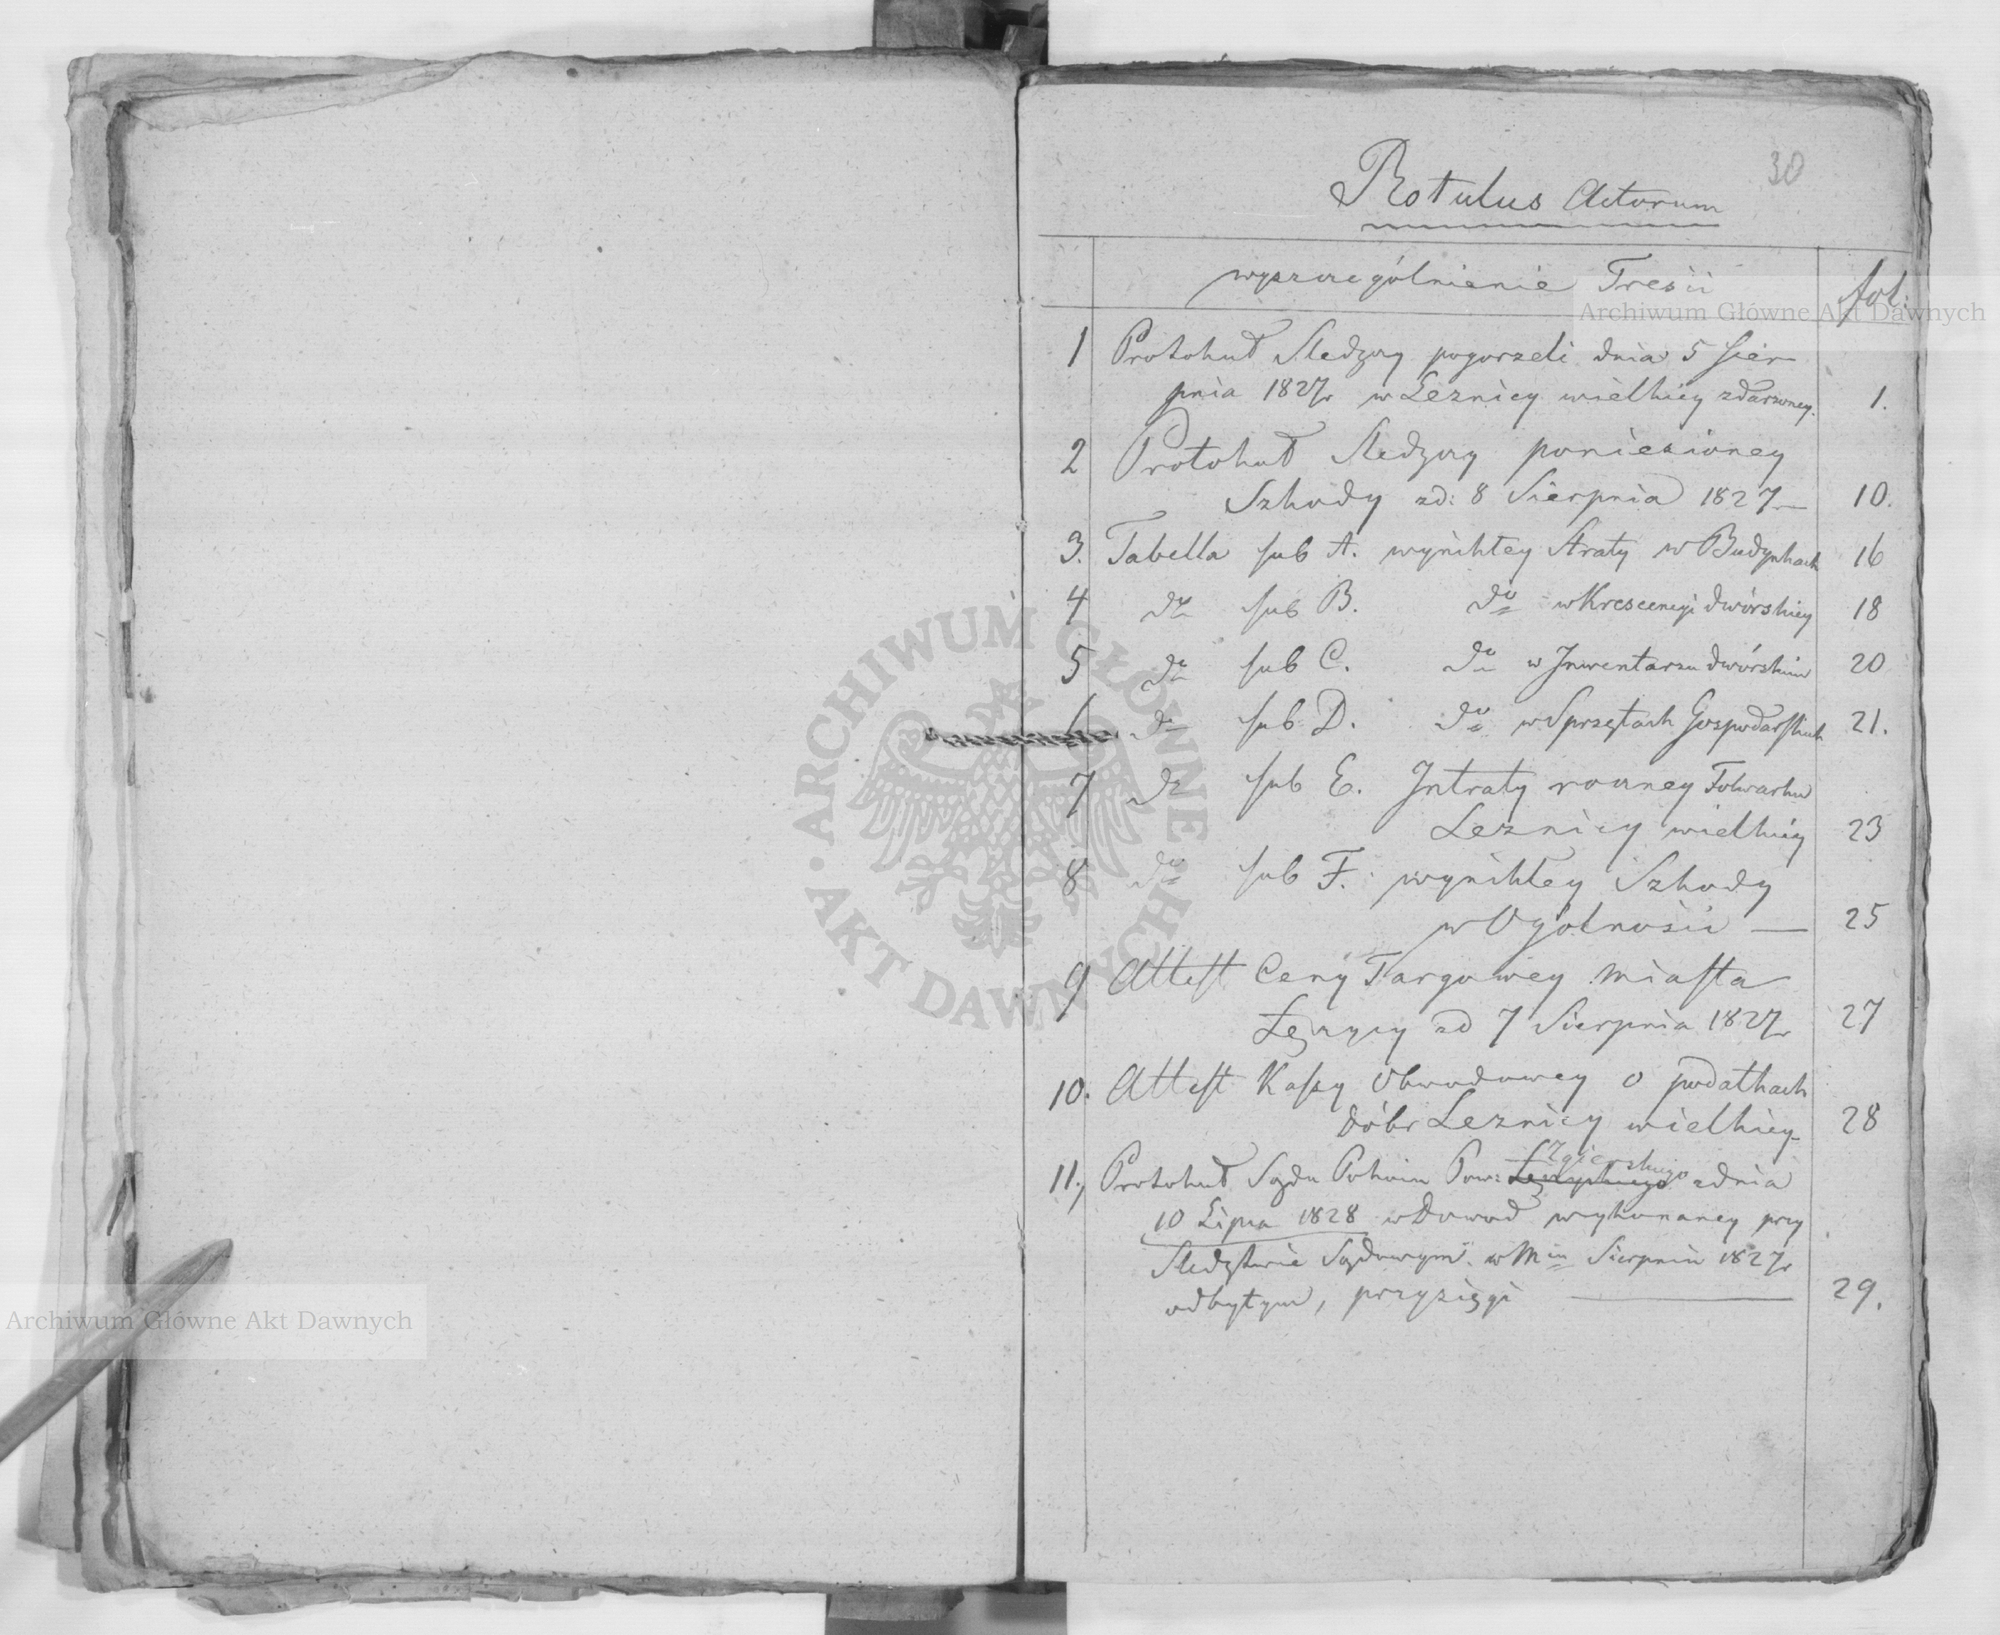 30
Rotulus Actorum
wyszczególnienie Treści
fol:
1 Protokuł Sledczy pogorzeli dnia 5 Sier-
pnia 1827r w Leznicy wielkiey zdarzoney. 1.
2 Protokuł Sledczy poniesioney
Szkody zd: 8 Sierpnia 1827 — 10.
3. Tabella sub A. wynikłey Straty w Budynkach 16
4 do sub B. do w Krescencyi dwórskiey 18
5 do sub C. do w Inwentarzu dwórskim 20
6 do sub D. do w Sprzętach Gospodarskich 21.
7 do sub E. Intraty roczney Folwarku
Leznicy wielkiey 23
8 do sub F. wynikłey Szkody
w Ogolności — 25
9 Attest Ceny Targowey Miasta
Łęczycy zd 7 Sierpnia 1827r 27
10. Attest Kassy Obwodowey o podatkach
dóbr Leznicy wielkiey 28
11, Protokuł Sądu Pokoiu Pow: Łęczyckiego Zgierskiego zdnia
10 Lipca 1828 w Dowod wykonaney przy
Sledztwie Sądowym w Mcu Sierpniu 1827r
odbytym, przysięgi — 29.
ARCHIWUM GŁÓWNE AKT DAWNYCH
Archiwum Główne Akt Dawnych
Archiwum Główne Akt Dawnych